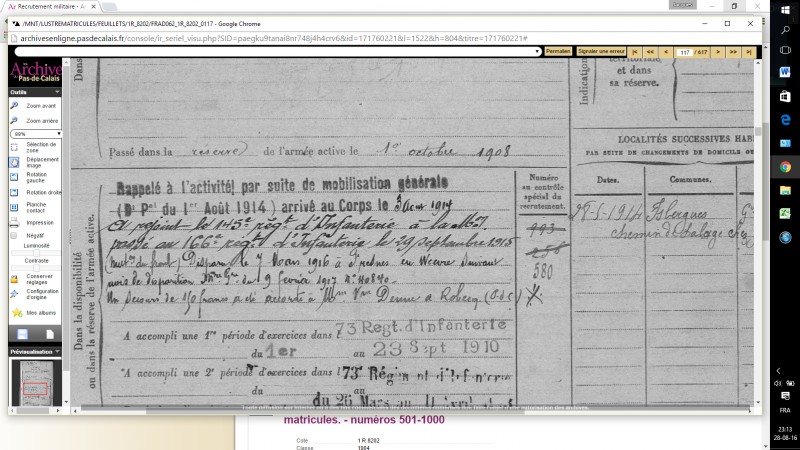 Ar Recrutement militaire - A
/MNT/LUSTREMATRICULES/FEUILLETS/1R_8202/FRAD062_1R_8202_0117 - Google Chrome
archivesenligne.pasdecalais.fr/console/ir_seriel_visu.php?SID=paegku9tanai8nr748j4h4crv6&id=171760221&l=1522&h=804&titre=171760221#
Permalien
Signaler une erreur
117 / 617
Archives
Pas-de-Calais
Outils
Zoom avant
Zoom arrière
99%
Sélection de zone
Déplacement image
Rotation gauche
Rotation droite
Planche contact
Impression
Négatif
Luminosité
Contraste
Conserver réglages
Configuration d'origine
Mes albums
Prévisualisation
Dans
Passé dans la réserve de l'armée active le 1er octobre 1908
Dans la disponibilité
ou dans la réserve de l'armée active.
Rappelé à l'activité par suite de mobilisation générale
(Dt Pel du 1er Août 1914) arrivé au Corps le 3 Août 1914
A rejoint le 145e régt d'Infanterie à la
passé au 166e régt d'Infanterie le 29 septembre 1915
Disparu le 7 Mars 1916 à Fresnes en Woevre suivant
avis de disparition du 9 février 1917
Un secours de 150 francs a été accordé à Mme Vve
A accompli une 1re période d'exercices dans l 73 Regt.d'Infanterie
du 1er au 23 Sept 1910
A accompli une 2e période d'exercices dans l 73e
du 26 Mars au 11
Numéro
au contrôle
spécial du
recrutement.
580
Indication
territoriale,
et dans
sa réserve.
LOCALITÉS SUCCESSIVES HAB
PAR SUITE DE CHANGEMENTS DE DOMICILE OU
Dates.
Communes.
28-5-1914 Isbergues
chemin de halage
matricules. - numéros 501-1000
Cote
1 R 8202
Classe
1904
FRA
23:13
28-08-16